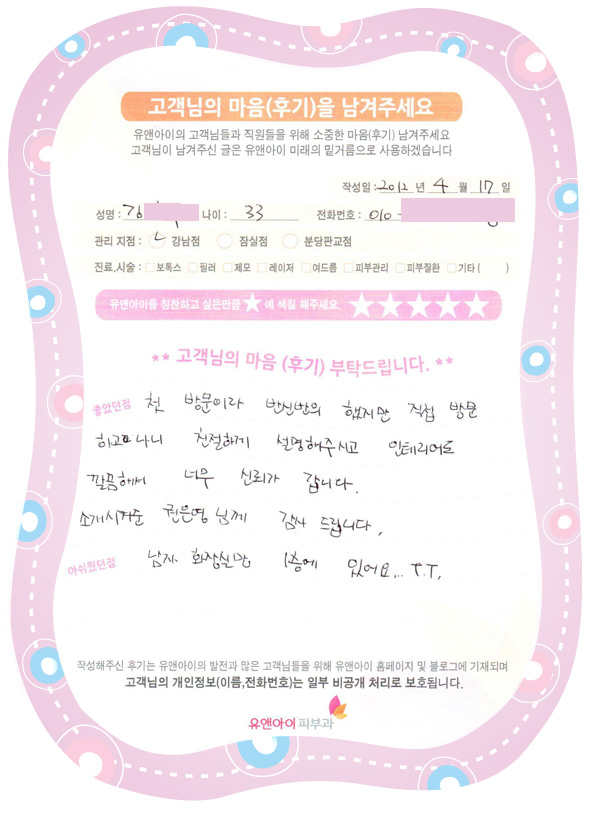 고객님의 마음(후기)을 남겨주세요
유앤아이의 고객님들과 직원들을 위해 소중한 마음(후기) 남겨주세요
고객님이 남겨주신 글은 유앤아이 미래의 밑거름으로 사용하겠습니다
작성일 : 2012 년 4 월 17 일
성명 : 김 나이 : 33 전화번호 : 010 -
관리 지점 : 강남점 잠실점 분당판교점
진료,시술 : 보톡스 필러 제모 레이저 여드름 피부관리 피부질환 기타 ( )
유앤아이를 칭찬하고 싶은만큼 ★ 에 색칠 해주세요. ★★★★★
** 고객님의 마음 (후기) 부탁드립니다. **
좋았던점 첫 방문이라 반신반의 했지만 직접 방문
하고나니 친절하게 설명해주시고 인테리어도
깔끔해서 너무 신뢰가 갑니다.
소개시켜준 권은영 님께 감사 드립니다.
아쉬웠던점 남자 화장실만 1층에 있어요... T.T.
작성해주신 후기는 유앤아이의 발전과 많은 고객님들을 위해 유앤아이 홈페이지 및 블로그에 기재되며
고객님의 개인정보(이름,전화번호)는 일부 비공개 처리로 보호됩니다.
유앤아이피부과